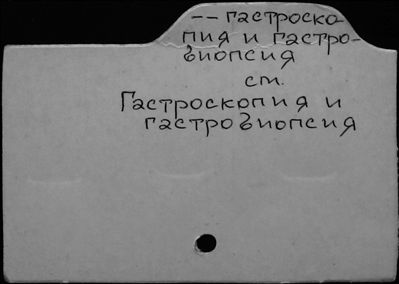 -- гастроско-
пия и гастро-
биопсия
см.
Гастроскопия и
гастробиопсия